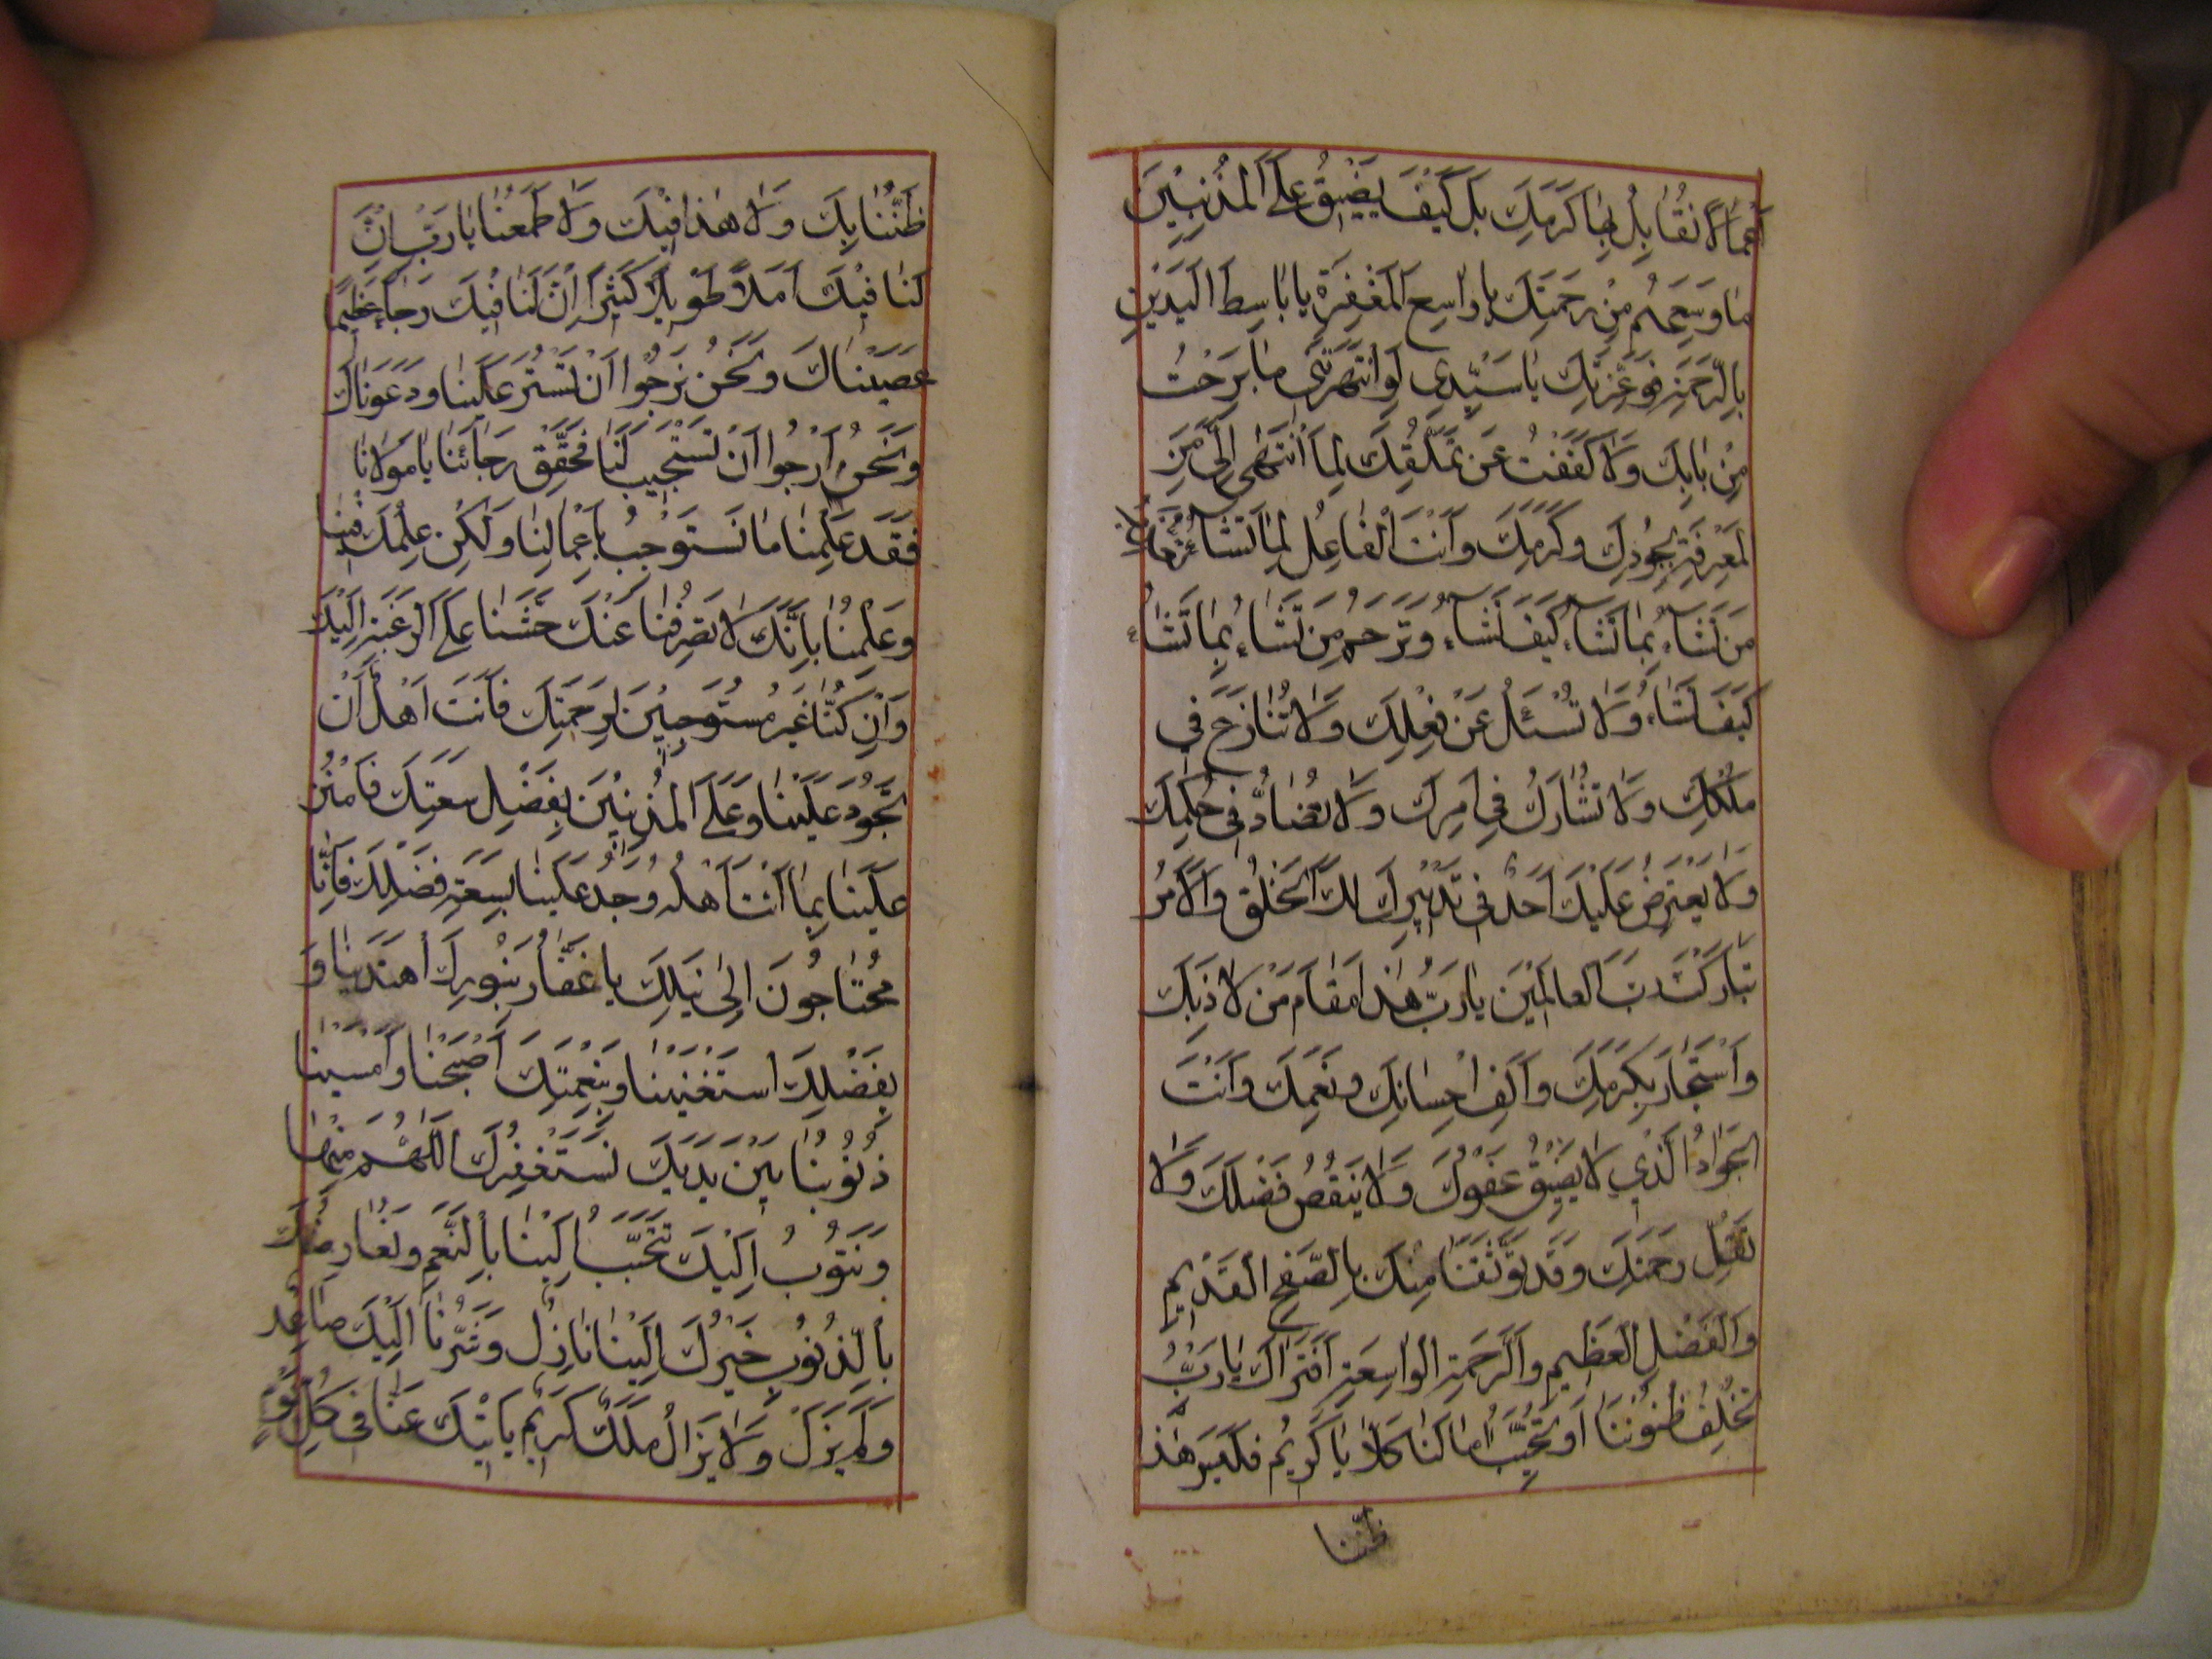 أَعْمَالًا نُقَابِلُ بِهَا كَرَمَكَ بَلْ كَيْفَ يَضِيقُ عَلَى الْمُذْنِبِينَ
مَا وَسِعَهُمْ مِنْ رَحْمَتِكَ يَا وَاسِعَ الْمَغْفِرَةِ يَا بَاسِطَ الْيَدَيْنِ
بِالرَّحْمَةِ فَوَعِزَّتِكَ يَا سَيِّدِي لَوِ انْتَهَرْتَنِي مَا بَرِحْتُ
مِنْ بَابِكَ وَلَا كَفَفْتُ عَنْ تَمَلُّقِكَ لِمَا انْتَهَى إِلَيَّ مِنَ
الْمَعْرِفَةِ بِجُودِكَ وَكَرَمِكَ وَأَنْتَ الْفَاعِلُ لِمَا تَشَاءُ
مَنْ تَشَاءُ بِمَا تَشَاءُ كَيْفَ تَشَاءُ وَتَرْحَمُ مَنْ تَشَاءُ بِمَا تَشَاءُ
كَيْفَ تَشَاءُ وَلَا تُسْئَلُ عَنْ فِعْلِكَ وَلَا تُنَازَعُ فِي
مُلْكِكَ وَلَا تُشَارَكُ فِي أَمْرِكَ وَلَا تُضَادُّ فِي حُكْمِكَ
وَلَا يَعْتَرِضُ عَلَيْكَ أَحَدٌ فِي تَدْبِيرِكَ لَكَ الْخَلْقُ وَالْأَمْرُ
تَبَارَكْتَ رَبَّ الْعَالَمِينَ يَا رَبِّ هٰذَا مَقَامُ مَنْ لَاذَ بِكَ
وَاسْتَجَارَ بِكَرَمِكَ وَأَلِفَ إِحْسَانَكَ وَنِعَمَكَ وَأَنْتَ
الْجَوَادُ الَّذِي لَا يَضِيقُ عَفْوُكَ وَلَا يَنْقُصُ فَضْلُكَ وَلَا
تَقِلُّ رَحْمَتُكَ وَقَدْ تَوَثَّقْنَا مِنْكَ بِالصَّفْحِ الْقَدِيمِ
وَالْفَضْلِ الْعَظِيمِ وَالرَّحْمَةِ الْوَاسِعَةِ أَفَتَرَاكَ يَا رَبِّ
تُخْلِفُ ظُنُونَنَا أَوْ تُخَيِّبُ آمَالَنَا كَلَّا يَا كَرِيمُ فَلَيْسَ هٰذَا
ظَنُّنَا
ظَنُّنَا بِكَ وَلَا هٰذَا فِيكَ وَلَا طَمَعُنَا يَا رَبِّ إِنَّ
لَنَا فِيكَ أَمَلًا طَوِيلًا كَثِيرًا إِنَّ لَنَا فِيكَ رَجَاءً عَظِيمًا
عَصَيْنَاكَ وَنَحْنُ نَرْجُوا أَنْ تَسْتُرَ عَلَيْنَا وَدَعَوْنَاكَ
وَنَحْنُ أَرْجُوا أَنْ تَسْتَجِيبَ لَنَا فَحَقِّقْ رَجَائَنَا يَا مَوْلَانَا
فَقَدْ عَلِمْنَا مَا نَسْتَوْجِبُ بِأَعْمَالِنَا وَلٰكِنْ عِلْمُكَ فِينَا
وَعِلْمُنَا بِأَنَّكَ لَا تَصْرِفُنَا عَنْكَ حَثَّنَا عَلَى الرَّغْبَةِ إِلَيْكَ
وَإِنْ كُنَّا غَيْرَ مُسْتَوْجِبِينَ لِرَحْمَتِكَ فَأَنْتَ أَهْلٌ أَنْ
تَجُودَ عَلَيْنَا وَعَلَى الْمُذْنِبِينَ بِفَضْلِ سَعَتِكَ فَامْنُنْ
عَلَيْنَا بِمَا أَنْتَ أَهْلُهُ وَجُدْ عَلَيْنَا بِسَعَةِ فَضْلِكَ فَإِنَّا
مُحْتَاجُونَ إِلَى نَيْلِكَ يَا غَفَّارُ بِنُورِكَ اهْتَدَيْنَا وَ
بِفَضْلِكَ اسْتَغْنَيْنَا وَبِنِعْمَتِكَ أَصْبَحْنَا وَأَمْسَيْنَا
ذُنُوبُنَا بَيْنَ يَدَيْكَ نَسْتَغْفِرُكَ اللّٰهُمَّ مِنْهَا
وَنَتُوبُ إِلَيْكَ تَتَحَبَّبُ إِلَيْنَا بِالنِّعَمِ وَنُعَارِضُكَ
بِالذُّنُوبِ خَيْرُكَ إِلَيْنَا نَازِلٌ وَشَرُّنَا إِلَيْكَ صَاعِدٌ
وَلَمْ يَزَلْ وَلَا يَزَالُ مَلَكٌ كَرِيمٌ يَأْتِيكَ عَنَّا فِي كُلِّ يَوْمٍ